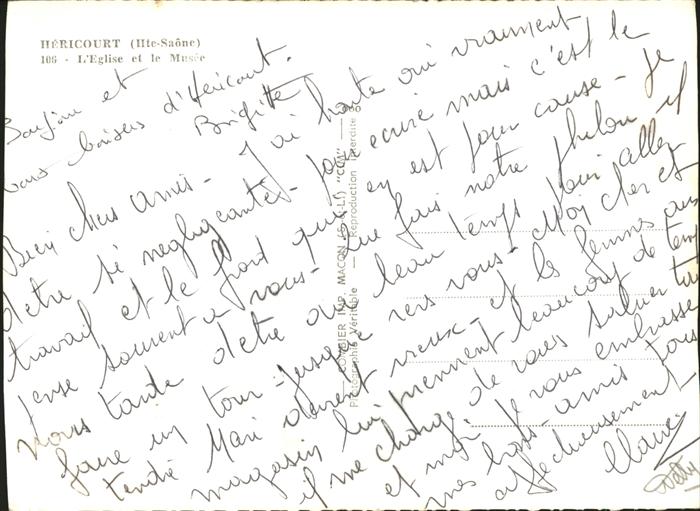 HÉRICOURT (Hte-Saône)
106 - L'Eglise et le Musée
et
bons baisers d'Héricourt.
Brigitte
Bien chers amis - J'ai honte oui vraiment
detre si négligeante - pour ecrire mais c'est le
travail et le froid qui en est pour cause - je
pense souvent a vous - que fais notre philou il
nous tarde detre au beau temps pour aller
faire un tour jusque vers vous - Mon cher et
tendre Mari devient vieux - et les femmes au
magasin lui prennent beaucoup de temps
il me charge de vous saluer tous
et moi je vous embrasse
mes bons amis tous
affectueusement
COMBIER IMP. MACON (S.-&-L.) "CIM"
Photographie Véritable — Reproduction interdite